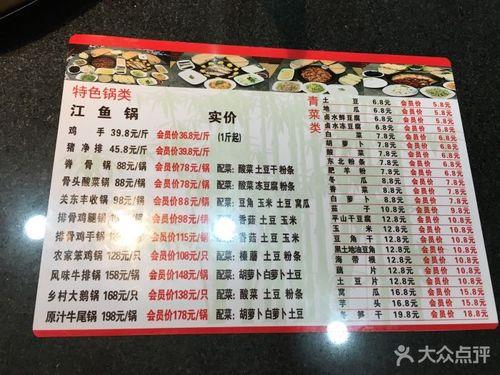 特色锅类
江 鱼 锅 实价
鸡 手 39.8元/斤 会员价36.8元/斤 (1斤起)
猪净排 45.8元/斤 会员价39.8元/斤
脊骨锅 88元/锅 会员价78元/锅 配菜:酸菜 土豆干 粉条
骨头酸菜锅 88元/锅 会员价78元/锅 配菜:酸菜 冻豆腐 粉条
关东丰收锅 98元/锅 会员价88元/锅 配菜:豆角 玉米 土豆 窝瓜
排骨鸡腿锅 108元/锅 会员价98元/锅 配菜:香菇 土豆 玉米
排骨鸡手锅 会员价115元/锅 配菜:香菇 土豆 玉米
农家笨鸡锅 128元/只 会员价108元/只 配菜:榛蘑 土豆 粉条
风味牛排锅 158元/锅 会员价148元/锅 配菜:胡萝卜白萝卜土豆
乡村大鹅锅 168元/只 会员价138元/只 配菜:酸菜 土豆 粉条
原汁牛尾锅 198元/锅 会员价178元/锅 配菜:胡萝卜白萝卜土豆
青菜类
土 豆 6.8元 会员价 5.8元
地 瓜 6.8元 会员价 5.8元
卤水鲜豆腐 6.8元 会员价 5.8元
卤水冻豆腐 6.8元 会员价 5.8元
白 菜 6.8元 会员价 5.8元
胡 萝 卜 7.8元 会员价 6.8元
酸 菜 7.8元 会员价 6.8元
东北粉条 7.8元 会员价 6.8元
肥羊粉 8.8元 会员价 7.8元
冬 瓜 8.8元 会员价 7.8元
香 菜 8.8元 会员价 7.8元
白 萝 卜 8.8元 会员价 7.8元
干 9.8元 会员价 8.8元
平山干豆腐 12.8元 会员价 10.8元
玉 米 12.8元 会员价 10.8元
豆 角 干 12.8元 会员价 10.8元
黑土地油豆角 12.8元 会员价 10.8元
海 带 根 12.8元 会员价 10.8元
藕 片 12.8元 会员价 10.8元
土 豆 片 12.8元 会员价 10.8元
窝 瓜 16.8元 会员价 15.8元
芋 头 16.8元 会员价 15.8元
冬 笋 干 19.8元 会员价 18.8元
大众点评